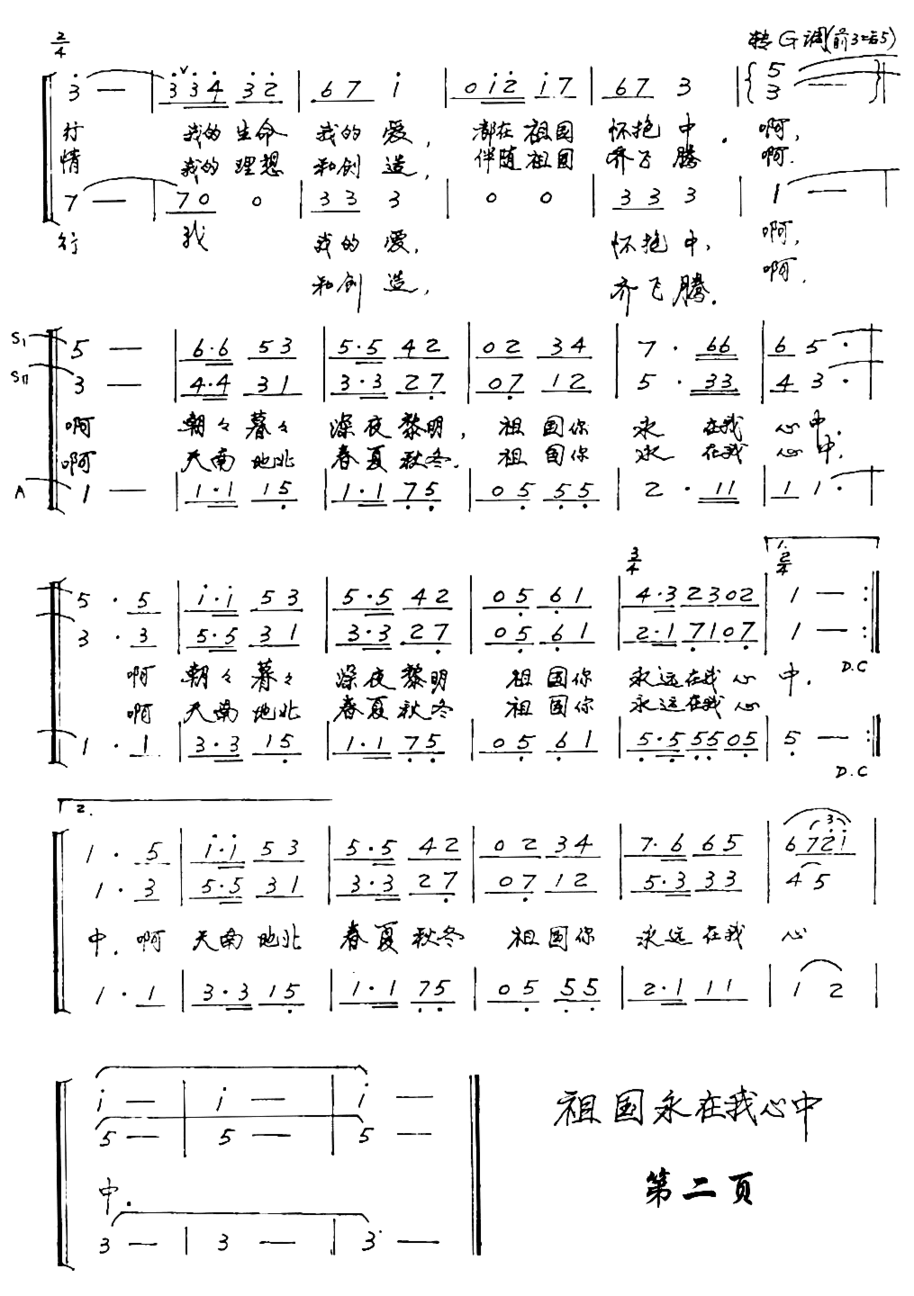 2/4 转G调(前3=后5)
3 — | 3 3 4 3 2 | 6 7 i | 0 i 2 i 7 | 6 7 3 | { 5 3 — } |
行 我的 生命 我的 爱, 都在 祖国 怀抱 中. 啊,
情 我的 理想 和创 造, 伴随 祖国 齐飞 腾 啊.
7 — | 7 0 0 | 3 3 3 | 0 0 | 3 3 3 | 1 — |
行 我 我的 爱, 怀抱 中, 啊,
和创 造, 齐飞 腾. 啊,
SI 5 — | 6·6 5 3 | 5·5 4 2 | 0 2 3 4 | 7 · 6 6 | 6 5 · |
SII 3 — | 4·4 3 1 | 3·3 2 7 | 0 7 1 2 | 5 · 3 3 | 4 3 · |
啊 朝々暮々 深夜黎明, 祖国你 永 在我 心中.
啊 天南地北 春夏秋冬. 祖国你 永 在我 心中.
A 1 — | 1·1 1 5 | 1·1 7 5 | 0 5 5 5 | 2 · 1 1 | 1 1 · |
3/4 1. 2/4
5 · 5 | i·i 5 3 | 5·5 4 2 | 0 5 6 1 | 4·3 2 3 0 2 | 1 — :||
3 · 3 | 5·5 3 1 | 3·3 2 7 | 0 5 6 1 | 2·1 7 1 0 7 | 1 — :||
D.C
啊 朝々暮々 深夜黎明 祖国你 永远在我心 中.
啊 天南地北 春夏秋冬 祖国你 永远在我心
1 · 1 | 3·3 1 5 | 1·1 7 5 | 0 5 6 1 | 5·5 5 5 0 5 | 5 — :||
D.C
2.
1 · 5 | i·i 5 3 | 5·5 4 2 | 0 2 3 4 | 7·6 6 5 | 6 7 2 i 3 |
1 · 3 | 5·5 3 1 | 3·3 2 7 | 0 7 1 2 | 5·3 3 3 | 4 5 |
中. 啊 天南地北 春夏秋冬 祖国你 永远在我 心
1 · 1 | 3·3 1 5 | 1·1 7 5 | 0 5 5 5 | 2·1 1 1 | 1 2 |
i — | i — | i — ||
5 — | 5 — | 5 — ||
中.
3 — | 3 — | 3 — ||
祖国永在我心中
第二页